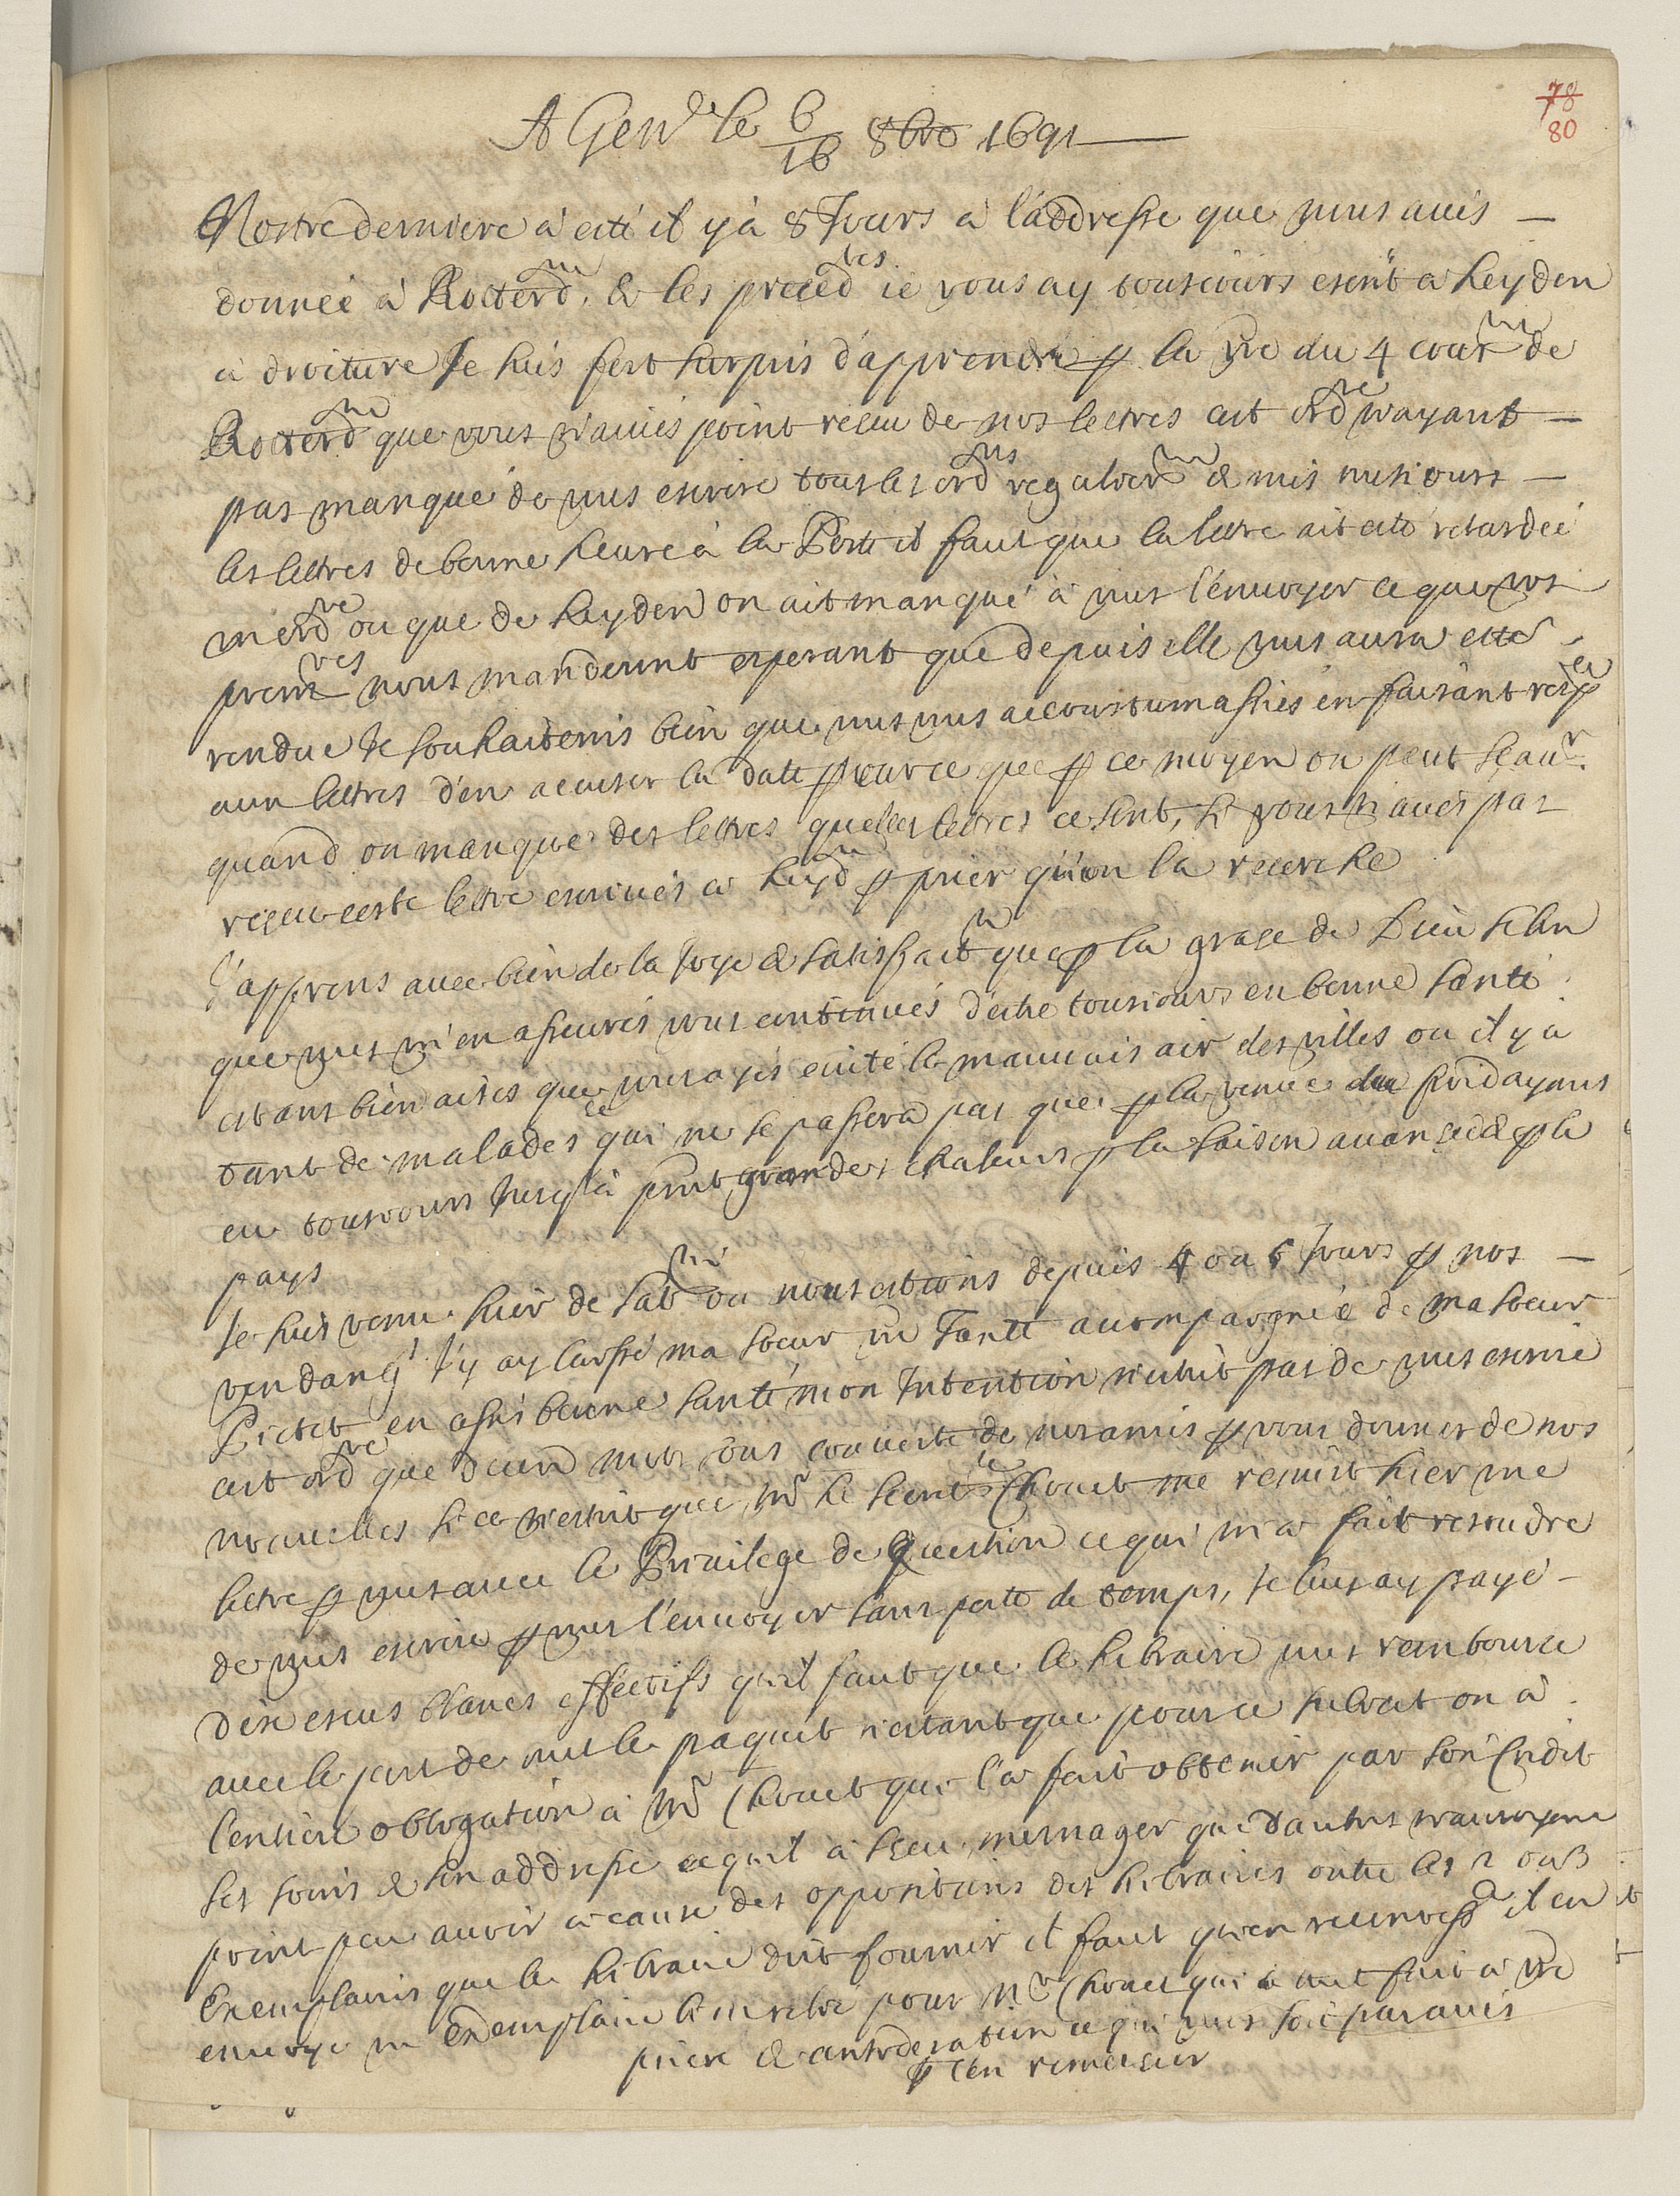 78
80
A Gen.e le 6/16 8bre 1691
Nostre derniere à esté il y à 8 Jours à l'addresse que vous avés
donneé à Rotterdm, & les precedtes ie vous ay tousiours escrit a Leyden
à droiture Je suis fort surpris d'apprendre p la vre du 4 court de
Rotterdm que vous n'aviés point reseu de nos lettres cet ordre n'ayant
pas manqué de vous escrire tous les ordres regulierem & mis tousiours
les lettres de bonne heure à la Poste il faut que la lettre ait esté retardeé
ou que de Leyden on ait manqué à vous l'envoyer ce que vos
premres nous manderont esperant que depuis elle vous aura esté
rendue Je souhaiterois bien que vous vous accoustumassiés en faisant respce
aux lettres d'en accuser la date pource que p ce moyen on peut sçaur
quand on manque des lettres quelles lettres ce sont, si vous n'avés pas
reseu ceste lettre escrivés a Leyd p prier qu'on la recerche
J'apprens avec bien de la Joye & satisfactn que p la grace de Dieu selon
que vous m'en asseurés vous continués d'estre tousiours en bonne santé
estans bien aises que vous ayés evité le mauvais air des villes ou il y a
tant de malades ce qui ne se passera pas que p la venue du froid ayans
eu tousiours Jusq'à pnt grandes chaleurs p la saison avancée & p le
pays
Je suis venu hier de Satigni ou nous estions depuis 4 ou 5 Jours p nos
vendang J'y ay laissé ma soeur vre Tante accompagneé de ma soeur
Pictet en assés bonne santé mon Intention n'estoit pas de vous escrire
cet ordre que d'un mot sous couverte de nos amis p vous donner de nos
nouvelles si ce n'estoit que Mr le Secretre Chouet me remist hier une
lettre p vous avec le Privilege de question ce qui m'a fait resoudre
de vous escrire p vous l'envoyer sans perte de temps, Je luy ay payé
dix escus blancs effectifs qu'il faut que le Libraire vous rembource
avec le port de tout le paquet n'estant que pour ce subiet on à
l'entiere obligation à Mr Chouet qui l'a fait obtenir par son Credit
ses soins & son addresse ce qu'il à sceu mesnager que d'autres n'auroyent
point peu avoir à cause des oppositions des Libraires outre les 2 ou 3
Exemplaires que le Libraire doit fournir il faut qu'en il en
envoye un Exemplaire bien relié pour Mr Chouet qui à tout fait à vre
priere & consideration ce qui vous soit par avis
p l'en remercier